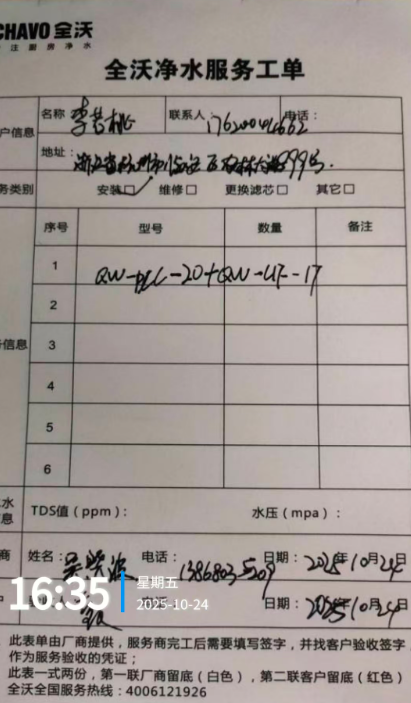 CHAVO 全沃
注厨房净水
全沃净水服务工单
户信息 名称 李 桃 联系人 电话：
地址： 浙江省杭州市临安区 999号
务类别 安装□ 维修□ 更换滤芯□ 其它□
序号 型号 数量 备注
1 QW- -20+QW-UF-17
2
信息 3
4
5
6
水 TDS值（ppm）： 水压（mpa）：
息
商 姓名： 吴 电话： 日期： 2025年10月24日
户 日期： 2025年10月24日
16:35 星期五
2025-10-24
此表单由厂商提供，服务商完工后需要填写签字，并找客户验收签字
作为服务验收的凭证；
此表一式两份，第一联厂商留底（白色），第二联客户留底（红色）
全沃全国服务热线：4006121926